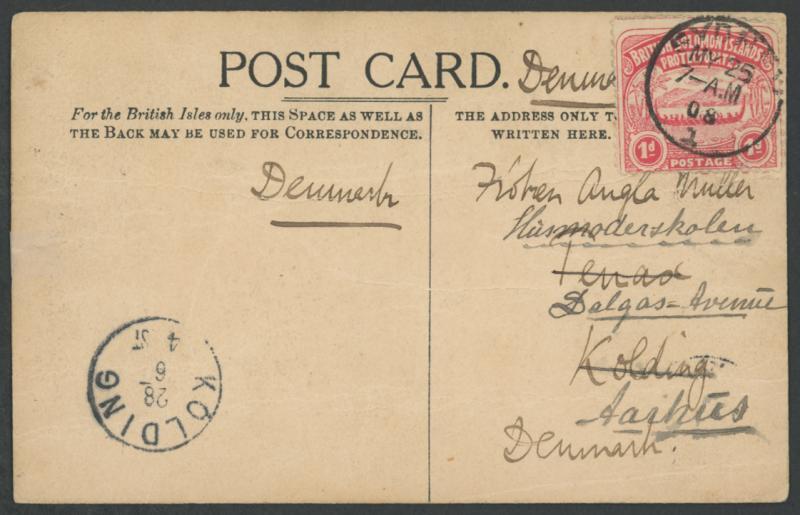 POST CARD.
Denmark
For the British Isles only, THIS SPACE AS WELL AS
THE BACK MAY BE USED FOR CORRESPONDENCE.
THE ADDRESS ONLY TO
WRITTEN HERE.
BRITISH SOLOMON ISLANDS
PROTECTORATE
1d
1d
POSTAGE
MY 25
7-A.M
08
1
Denmark
Fröken Angla Müller
Husmoderskolen
Tenax
Dalgas=Avenue
Kolding
Aarhus
Denmark.
KOLDING
28
6
4